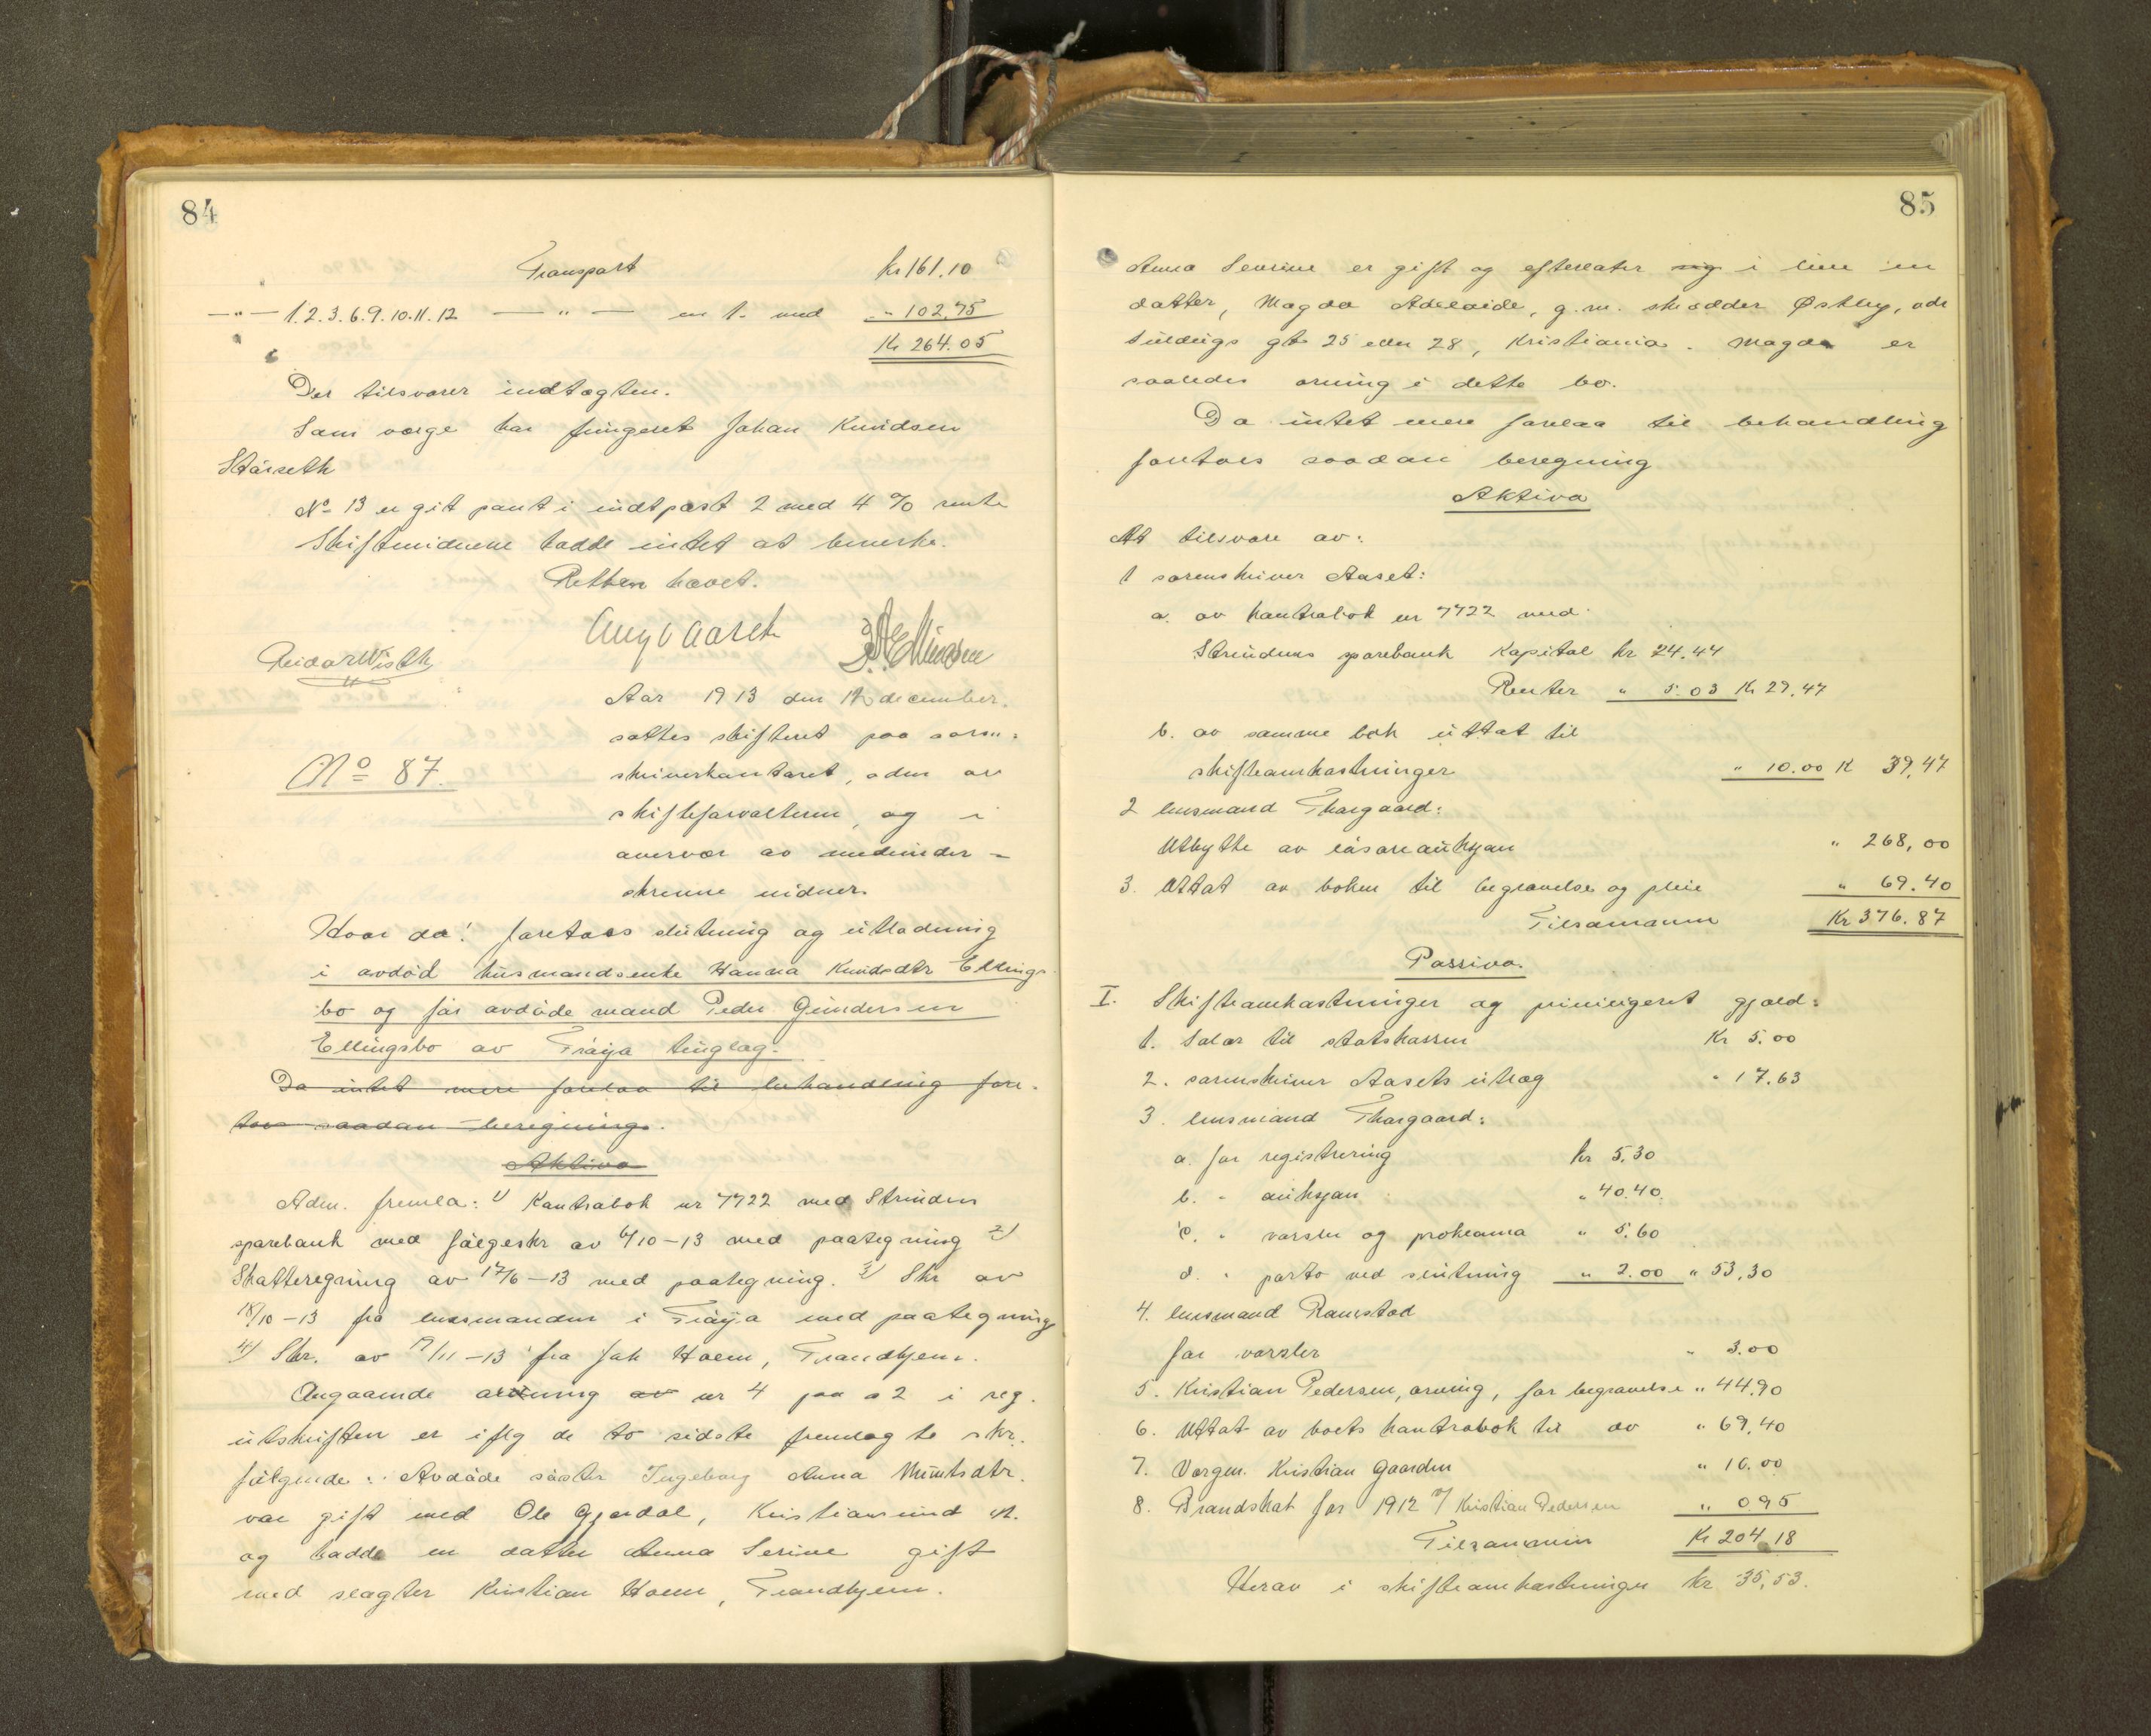 84
Transport kr 161.10
—"— 1.2.3.6.9.10.11.12 —"— er 1. med " 102.75
Kr 264.05
Der tilsvarer indtægten.
Som værge har fungeret Johan Knudsen
Størseth
No 13 er git pant i indtpost 2 med 4 % rente
Skiftevidnene hadde intet at bemerke.
Retten hævet.
Aug Aaset
Reidar Wisth
Aar 1913 den 12 december
sattes skifteret paa soren=
skriverkontoret, adm av
No 87.
skifteforvalteren, og i
overvær av medunder=
skrevne vidner.
Hvor da: foretoes slutning og utlodning
i avdød husmandsenke Hanna Knudsdtr Ellings
bo og før avdøde mand Peder Gundersen
Ellingsbo av Frøya tinglag.
Da intet mere forelaa til behandling fore.
toes saadan beregning.
Aktiva
Adm. fremla: 1) Kontrabok nr 7722 med Strinden
sparebank med følgeskr av 6/10-13 med paategning 2)
Skatteregning av 17/6-13 med paategning. 3) Skr av
18/10-13 fra lensmanden i Frøya med paategning
4) Skr. av 17/11-13 fra Joh Hoem, Trondhjem.
Angaaende arving av nr 4 paa a 2 i reg.
utskriften er iflg de to sidste fremlagte skr.
følgende: Avdøde søster Ingeborg Anna Muntsdtr.
var gift med Ole Gjerdal, Kristiansund N.
og hadde en datter Anna Serine gift
med slagter Kristian Hoem, Trondhjem.
85
Anna Severine er gift og efterlater sig i live en
datter, Magda Adelaide, g.m. skrædder Østby, ade
tuldugs gt 25 eller 28, Kristiania. Magda er
saaledes arving i dette bo.
Da intet mere forelaa til behandling
foretoes saadan beregning
Aktiva
At tilsvare av:
1 sorenskriver Aaset:
a. av kontrabok nr 7722 med
Strindens sparebank Kapital kr 24.44
Renter " 5.03 Kr 29.47
b. av samme bok uttat til
skifteomkostninger " 10.00 K 39,47
2 lensmand Thorgaard:
Utbytte av løsøreauksjon " 268,00
3. Uttat av boken til begravelse og pleie " 69.40
Tilsammen Kr 376.87
Passiva.
I. Skifteomkostninger og privilgeret gjæld:
1. Salær til statskassen Kr 5.00
2. sorenskriver Aasets utlæg " 17.63
3. lensmand Thorgaard:
a. for registrering kr 5.30
b. " auksjon " 40.40.
c. " varsler og proklama " 5.60
d. " porto ved slutning " 2.00 " 53,30
4. lensmand Ramstad
for varsler " 3.00
5. Kristian Pedersen, arving, for begravelse " 44.90
6. Uttat av boets kontrabok til do " 69,40
7. Vergen. Kristian Gaarden " 10.00
8. Brandskat for 1912 v/ Kristian Pedersen " 095
Tilsammen Kr 204.18
Herav i skifteomkostninger kr 35,53.